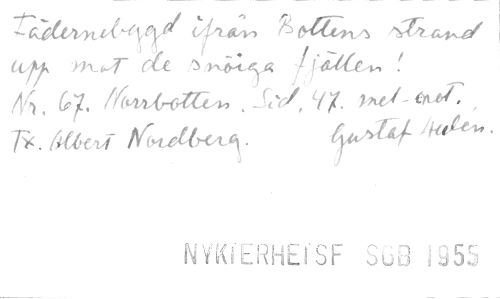 Fädernebygd ifrån Bottens strand
upp mot de snöiga fjällen!
Nr. 67. Norrbotten. Sid. 47. mel-
Tx. Albert Nordberg. Gustaf
NYKTERHETSF SGB 1955